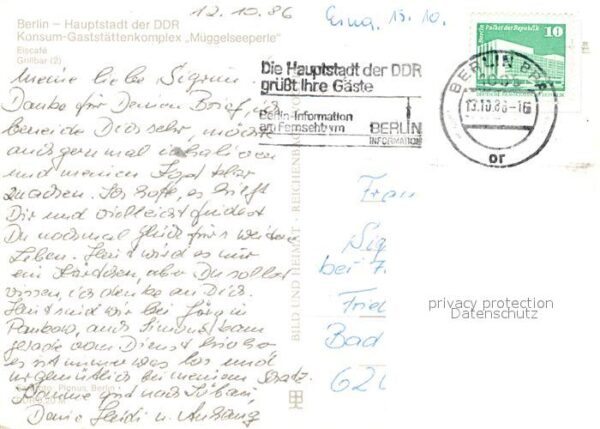 12.10.86
Erna 13. 10.
Berlin – Hauptstadt der DDR
Konsum-Gaststättenkomplex „Müggelseeperle"
Eiscafé
Grillbar (2)
Meine liebe Sigrun!
Danke für Deinen Brief, ich
beneide Dich sehr, möchte
auch gern mal inhalieren
und meinen Kopf klar
machen. Ich hoffe, es hilft
Dir und vielleicht findest
Du nochmal Glück für's weitere
Leben. Heut wird es nur
ein Kärtchen, aber Du sollst
wissen, ich denke an Dich.
Heut sind wir bei Jörg in
Pankow, auch Simone kam
gerade vom Dienst
es ist immer was los und
urgemütlich bei meinem Schatz.
Komme und nach
Deine Heidi u. Anhang
Die Hauptstadt der DDR
grüßt Ihre Gäste
Berlin-Information
am Fernsehturm
BERLIN
INFORMATION
BERLIN BPA
1085
13.10.86-16
or
Berlin, Palast der Republik
10
DDR
BILD UND HEIMAT · REICHENBACH
Frau
Sig
bei F
Fried
Bad
620
privacy protection
Datenschutz